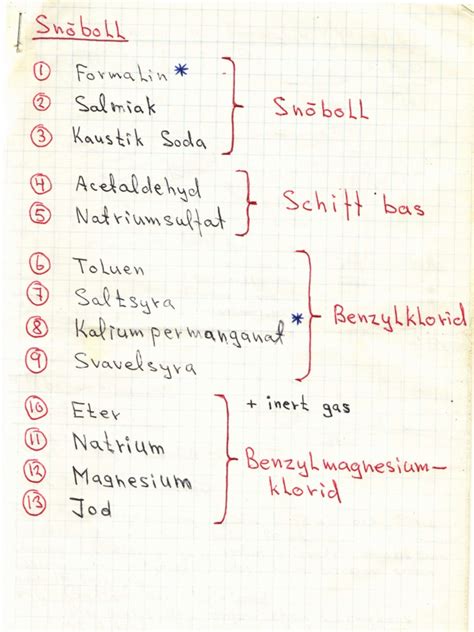 Snöboll
① Formalin *
② Salmiak
③ Kaustik Soda
Snōboll
④ Acetaldehyd
⑤ Natriumsulfat
Schiff bas
⑥ Toluen
⑦ Saltsyra
⑧ Kaliumpermanganat *
⑨ Svavelsyra
Benzylklorid
⑩ Eter + inert gas
⑪ Natrium
⑫ Magnesium
⑬ Jod
Benzylmagnesium-
klorid